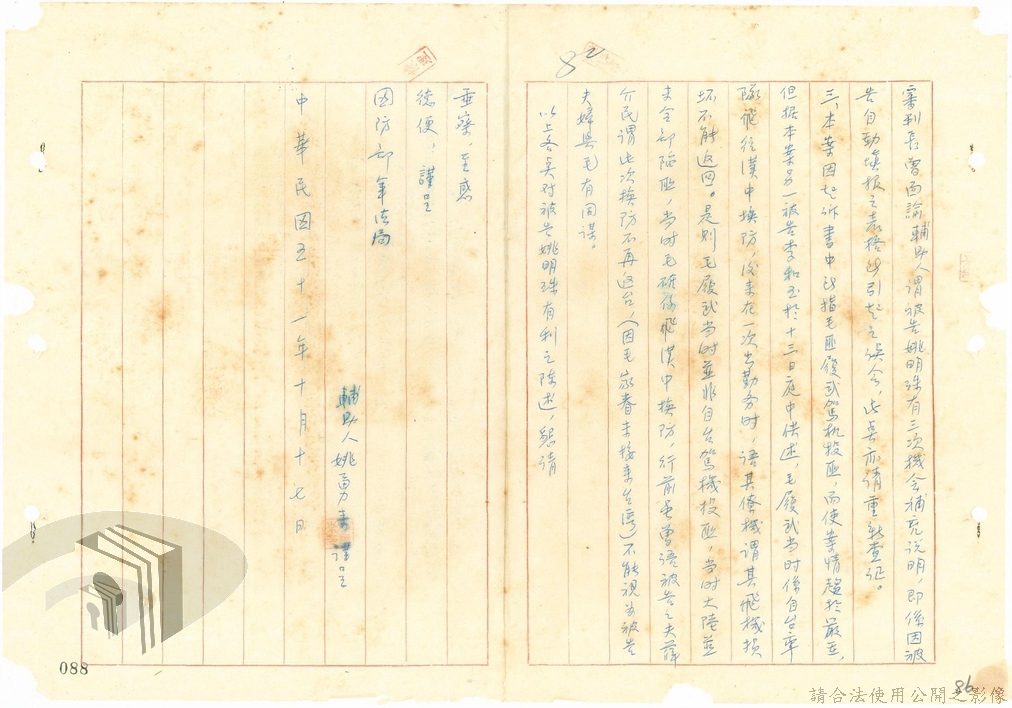 82
審判長曾面諭輔助人謂被告姚明珠有三次機会補充說明,即係因被
告自動填報之表格所引起之误会,此點亦請重新查証。
三、本案因起诉書中所指毛匪履武駕机投匪,而使案情趨於嚴重,
但据本案另一被告李和玉於十三日庭中供述,毛履武当时係自台率
隊飛往漢中換防,後来在一次出勤务时,语其僚機謂其飛機損
坏不能返回。是則毛履武当时並非自台駕機投匪,当时大陸並
未全部陷匪,当时毛確係飛漢中換防,行前虽曾语被告之夫薛
介民謂此次換防不再返台,(因毛家眷未接来台湾)不能視为被告
夫婦與毛有同謀。
以上各点对被告姚明珠有利之陈述,懇請
垂察,至感
德便,謹呈
國防部軍法局
輔助人姚勇来謹呈
中華民國五十一年十月十七日
088
86
請合法使用公開之影像